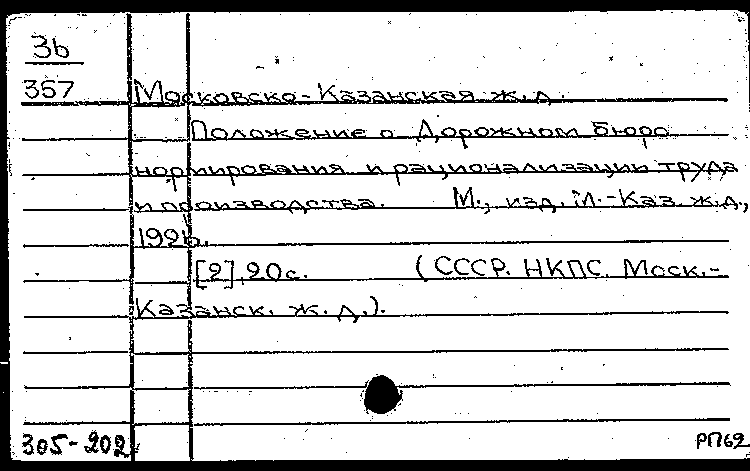 3б
357
Московско-Казанская ж.д.
Положение о Дорожном бюро
нормирования и рационализации труда
и производства. М., изд. М.-Каз. ж.д.,
1926.
[2], 20с. (СССР. НКПС. Моск.-
Казанск. ж.д.).
305-202
РП62